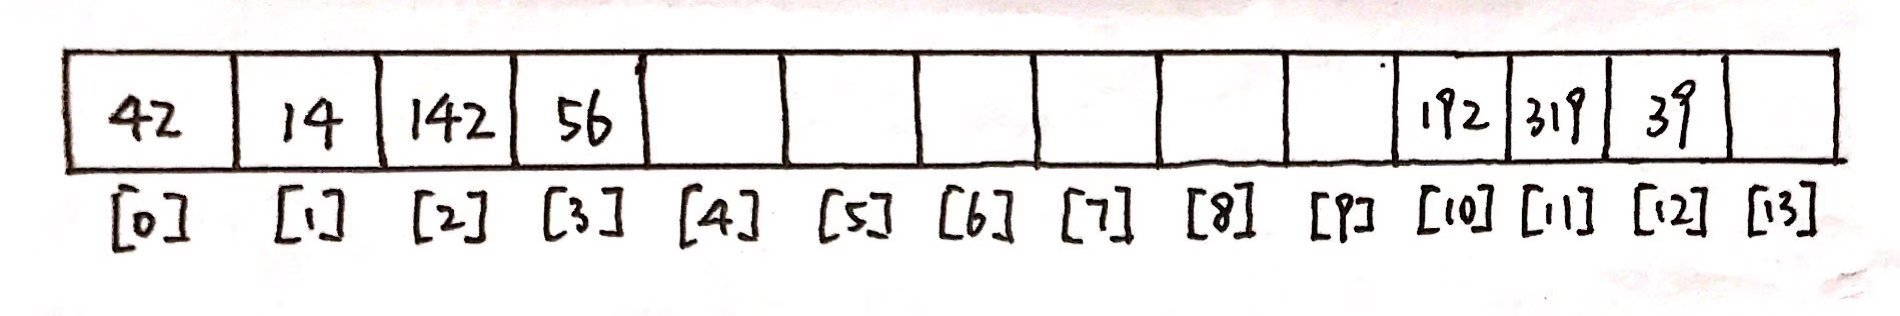 42 14 142 56 192 319 39
[0] [1] [2] [3] [4] [5] [6] [7] [8] [9] [10] [11] [12] [13]